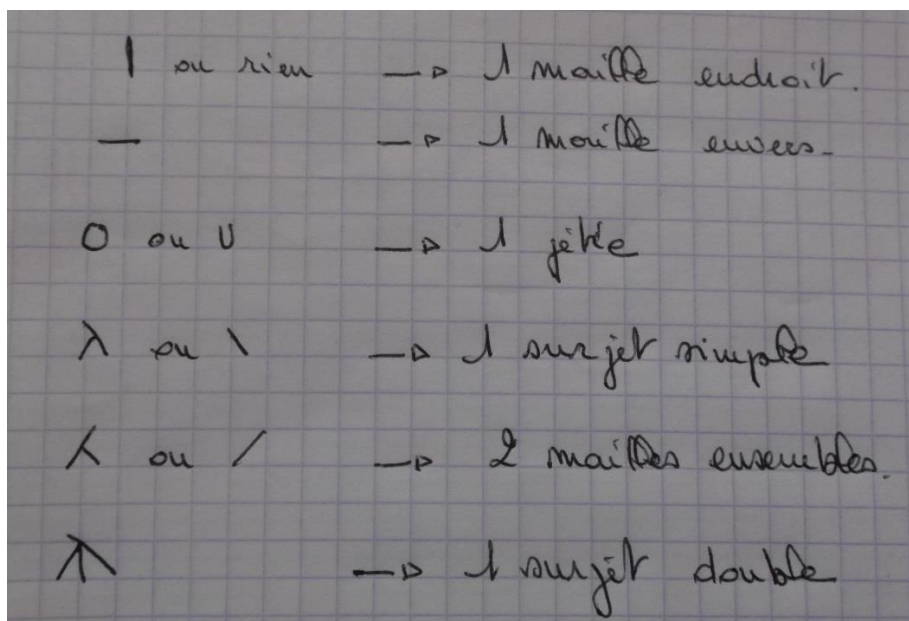 | ou rien → 1 maille endroit.
— → 1 maille envers.
O ou U → 1 jétée
λ ou \ → 1 surjet simple
⅄ ou / → 2 mailles ensembles.
↑ → 1 surjet double